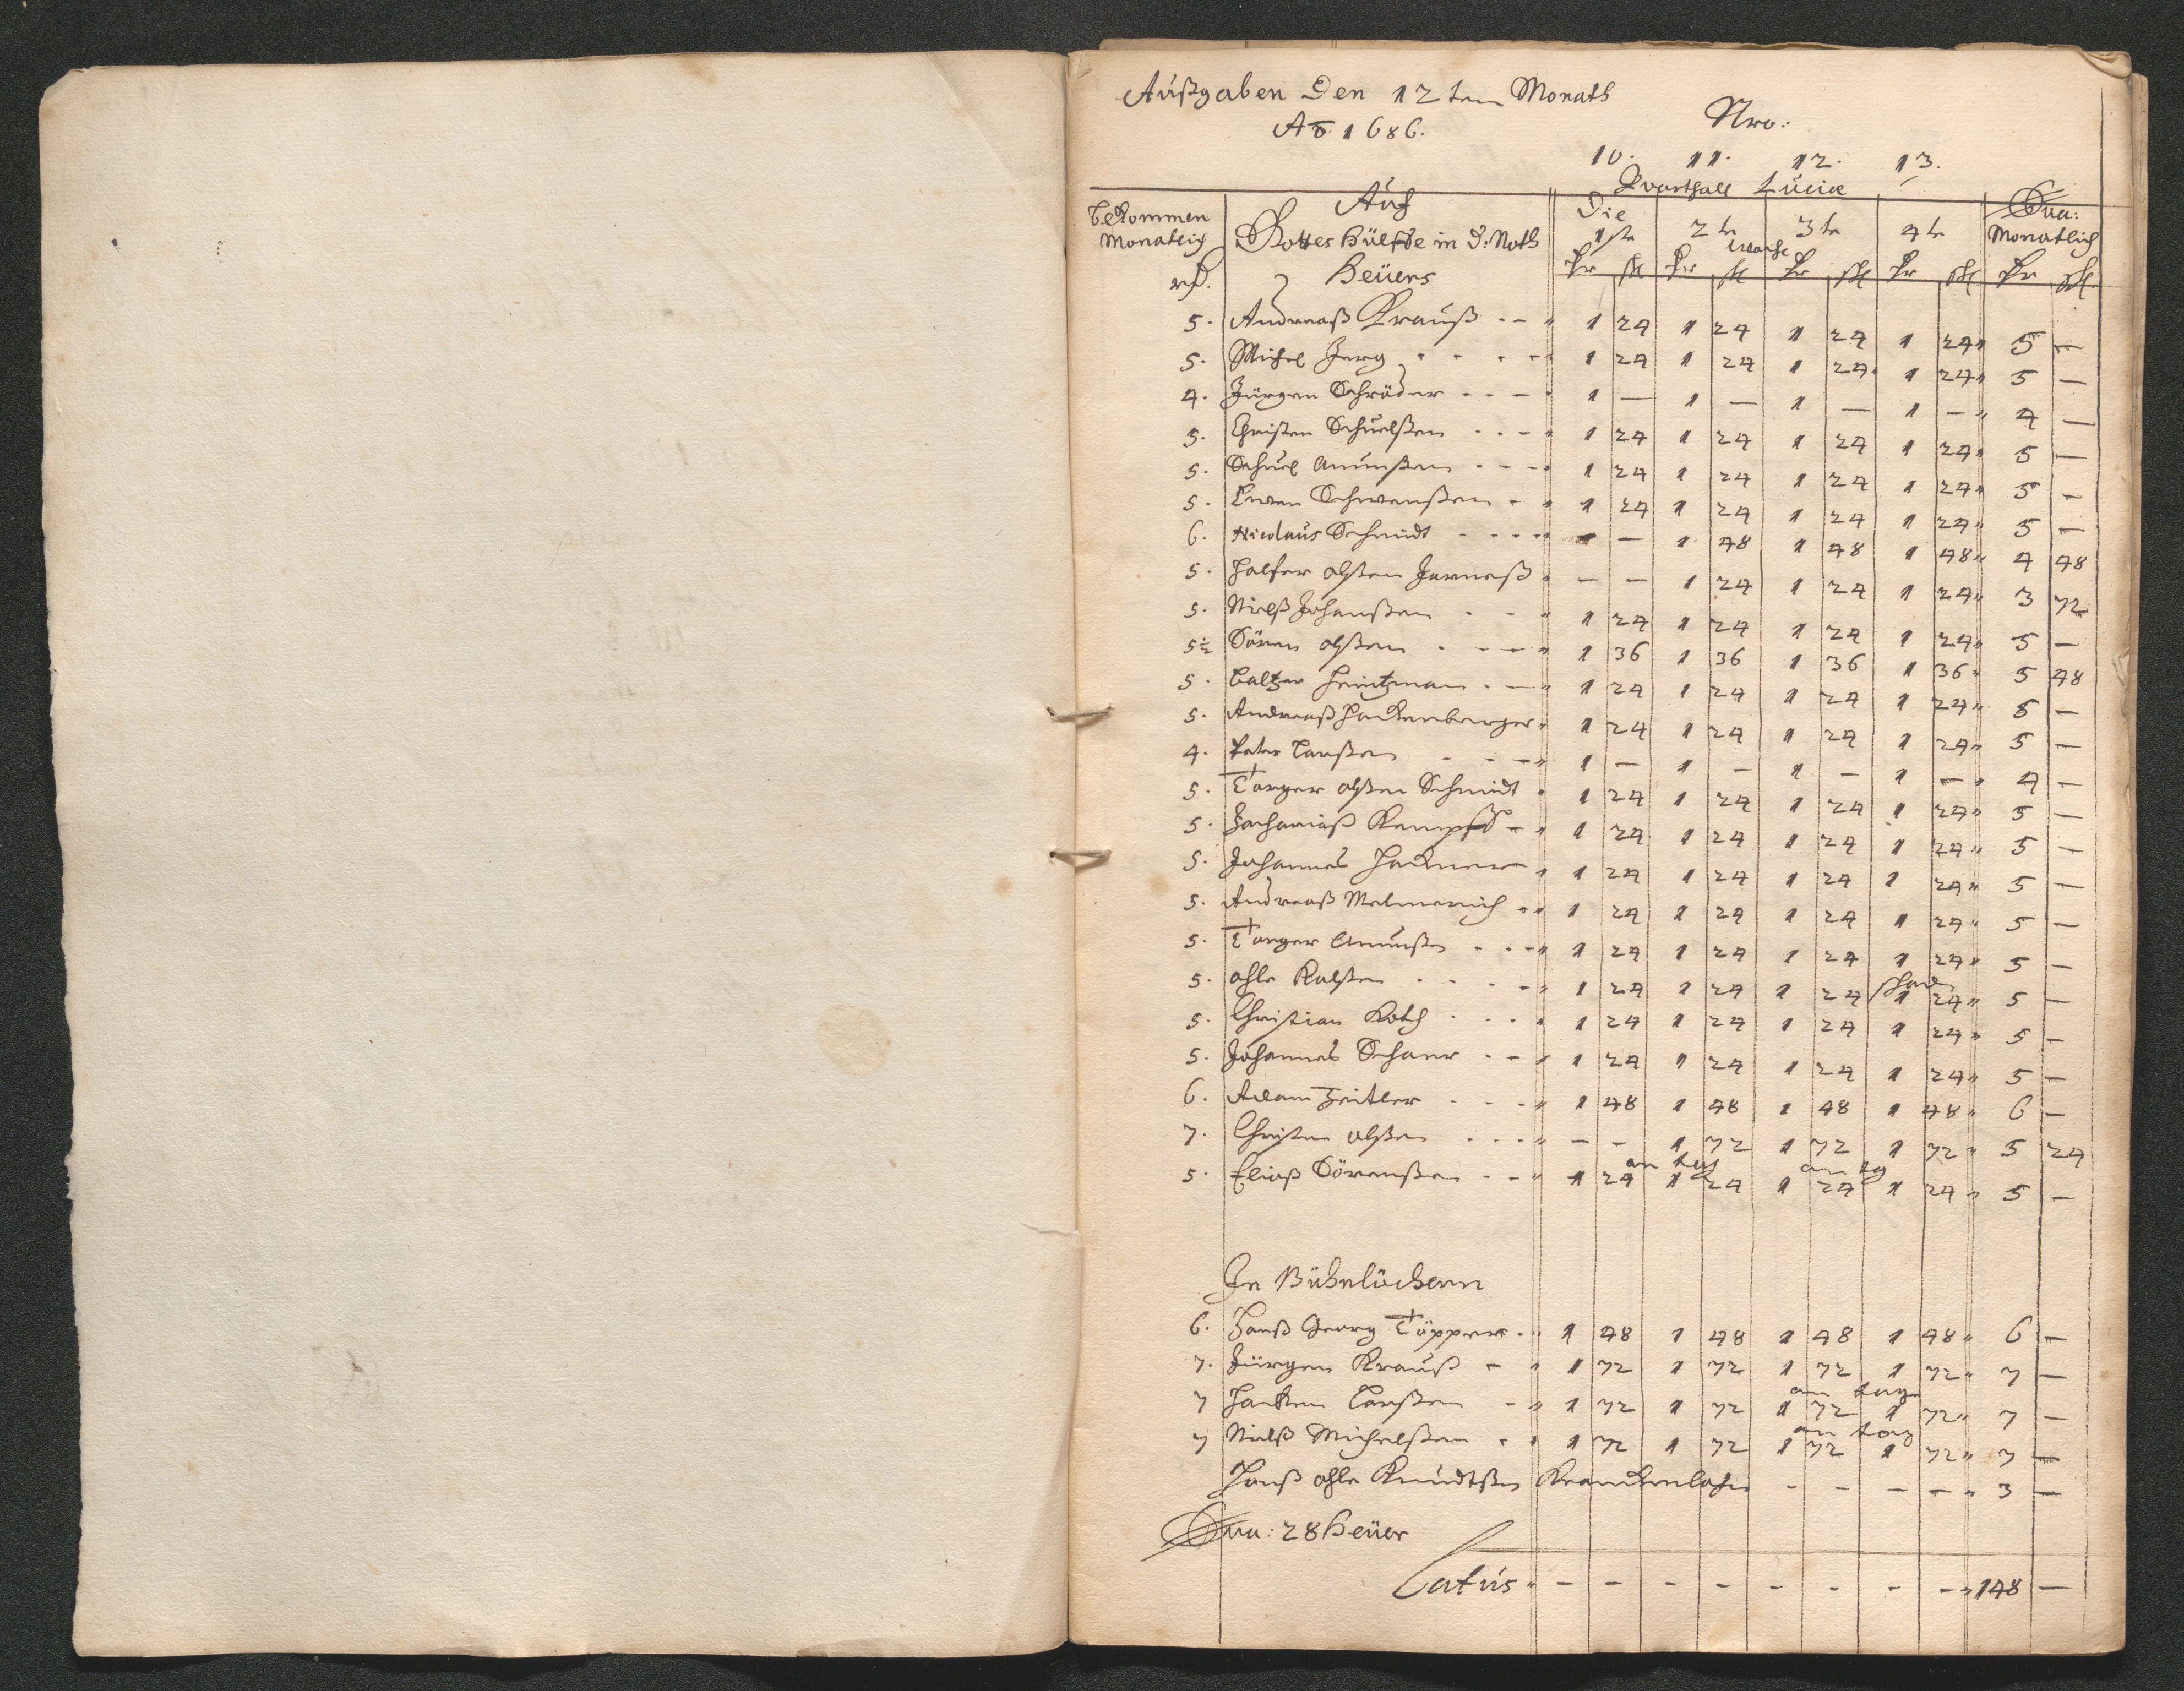 Außgaben Den 12 ten Monath
Ao 1686.
Nro:
10. 11. 12. 13.
Quarthall Luciæ
bekommen Monatlich
rd.
Auf Gottes Hülffe in d: Noth
Heüers
Die 1ste 2te 3te 4te woche
Sua: Monatlich
5. Andreaß Krauß 1 24 1 24 1 24 1 24 5 —
5. Michel Jerg 1 24 1 24 1 24 1 24 5 —
4. Jürgen Schröder 1 — 1 — 1 — 1 — 4 —
5. Christen Schuelßen 1 24 1 24 1 24 1 24 5 —
5. Schuel Amunßen 1 24 1 24 1 24 1 24 5 —
5. Enven Schwenßen 1 24 1 24 1 24 1 24 5 —
6. Nicolaus Schmidt — — 1 48 1 48 1 48 4 48
5. Halfer olßen — — 1 24 1 24 1 24 3 72
5. Nielß Johanßen 1 24 1 24 1 24 1 24 5 —
5½ Sören olßen 1 36 1 36 1 36 1 36 5 48
5. Baltzer Heintzman 1 24 1 24 1 24 1 24 5 —
5. Andreaß Hackenberger 1 24 1 24 1 24 1 24 5 —
4. Peter Larßen 1 — 1 — 1 — 1 — 4 —
5. Torger olßen Schmidt 1 24 1 24 1 24 1 24 5 —
5. Zachariaß Kempff 1 24 1 24 1 24 1 24 5 —
5. Johannes Hackner 1 24 1 24 1 24 1 24 5 —
5. Andreaß Melmerich 1 24 1 24 1 24 1 24 5 —
5. Torger Amunßen 1 24 1 24 1 24 1 24 5 —
5. ohle Kolßen 1 24 1 24 1 24 1 24 5 —
5. Christian Koth 1 24 1 24 1 24 1 24 5 —
5. Johannes Schaer 1 24 1 24 1 24 1 24 5 —
6. Adam Zeitler 1 48 1 48 1 48 1 48 6 —
7. Christen olßen — — 1 72 1 72 1 72 5 24
an tag an tg
5. Eliaß Sörenßen 1 24 1 24 1 24 1 24 5 —
In Bühnlöchern
6. Hanß Georg Töpper 1 48 1 48 1 48 1 48 6 —
7. Jürgen Krauß 1 72 1 72 1 72 1 72 7 —
an tag
7 Larßen 1 72 1 72 1 72 1 72 7 —
an tag
7 Nielß Michelßen 1 72 1 72 1 72 1 72 7 —
Hanß ohle Knudtßen Kranckenlohn 3 —
Sua: 28 Heüer
Latus 148 —